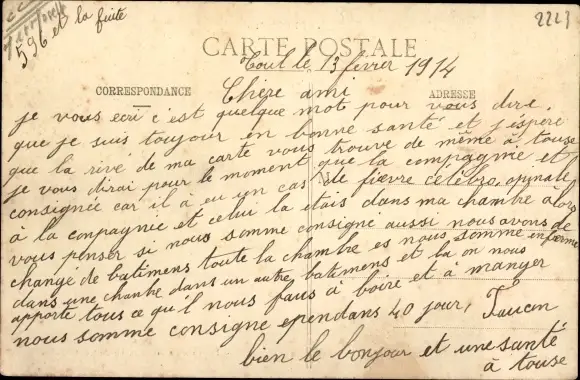 596 et la suite
2223
CARTE POSTALE
Toul le 13 févier 1914
CORRESPONDANCE
ADRESSE
Chère ami
je vous ecri c'est quelque mot pour vous dire,
que je suis toujour en bonne santé et j'espère
que la rivé de ma carte vous trouve de même à touse
je vous dirai pour le moment que la compagnie et
consignée car il a eu un cas de fièvre celebro, opinale
à la conpagnie et celui la etais dans ma chambre alors
vous penser si nous somme consigné aussi nous avons de
changé de batimens toute la chambre es nous somme enferme
dans une chanbre dans un autre batimens et la on nous
apporte tous ce qu'il nous faus à boire et à manger
nous somme consigne ependans 40 jour,
bien le bonjour et une santé
à touse